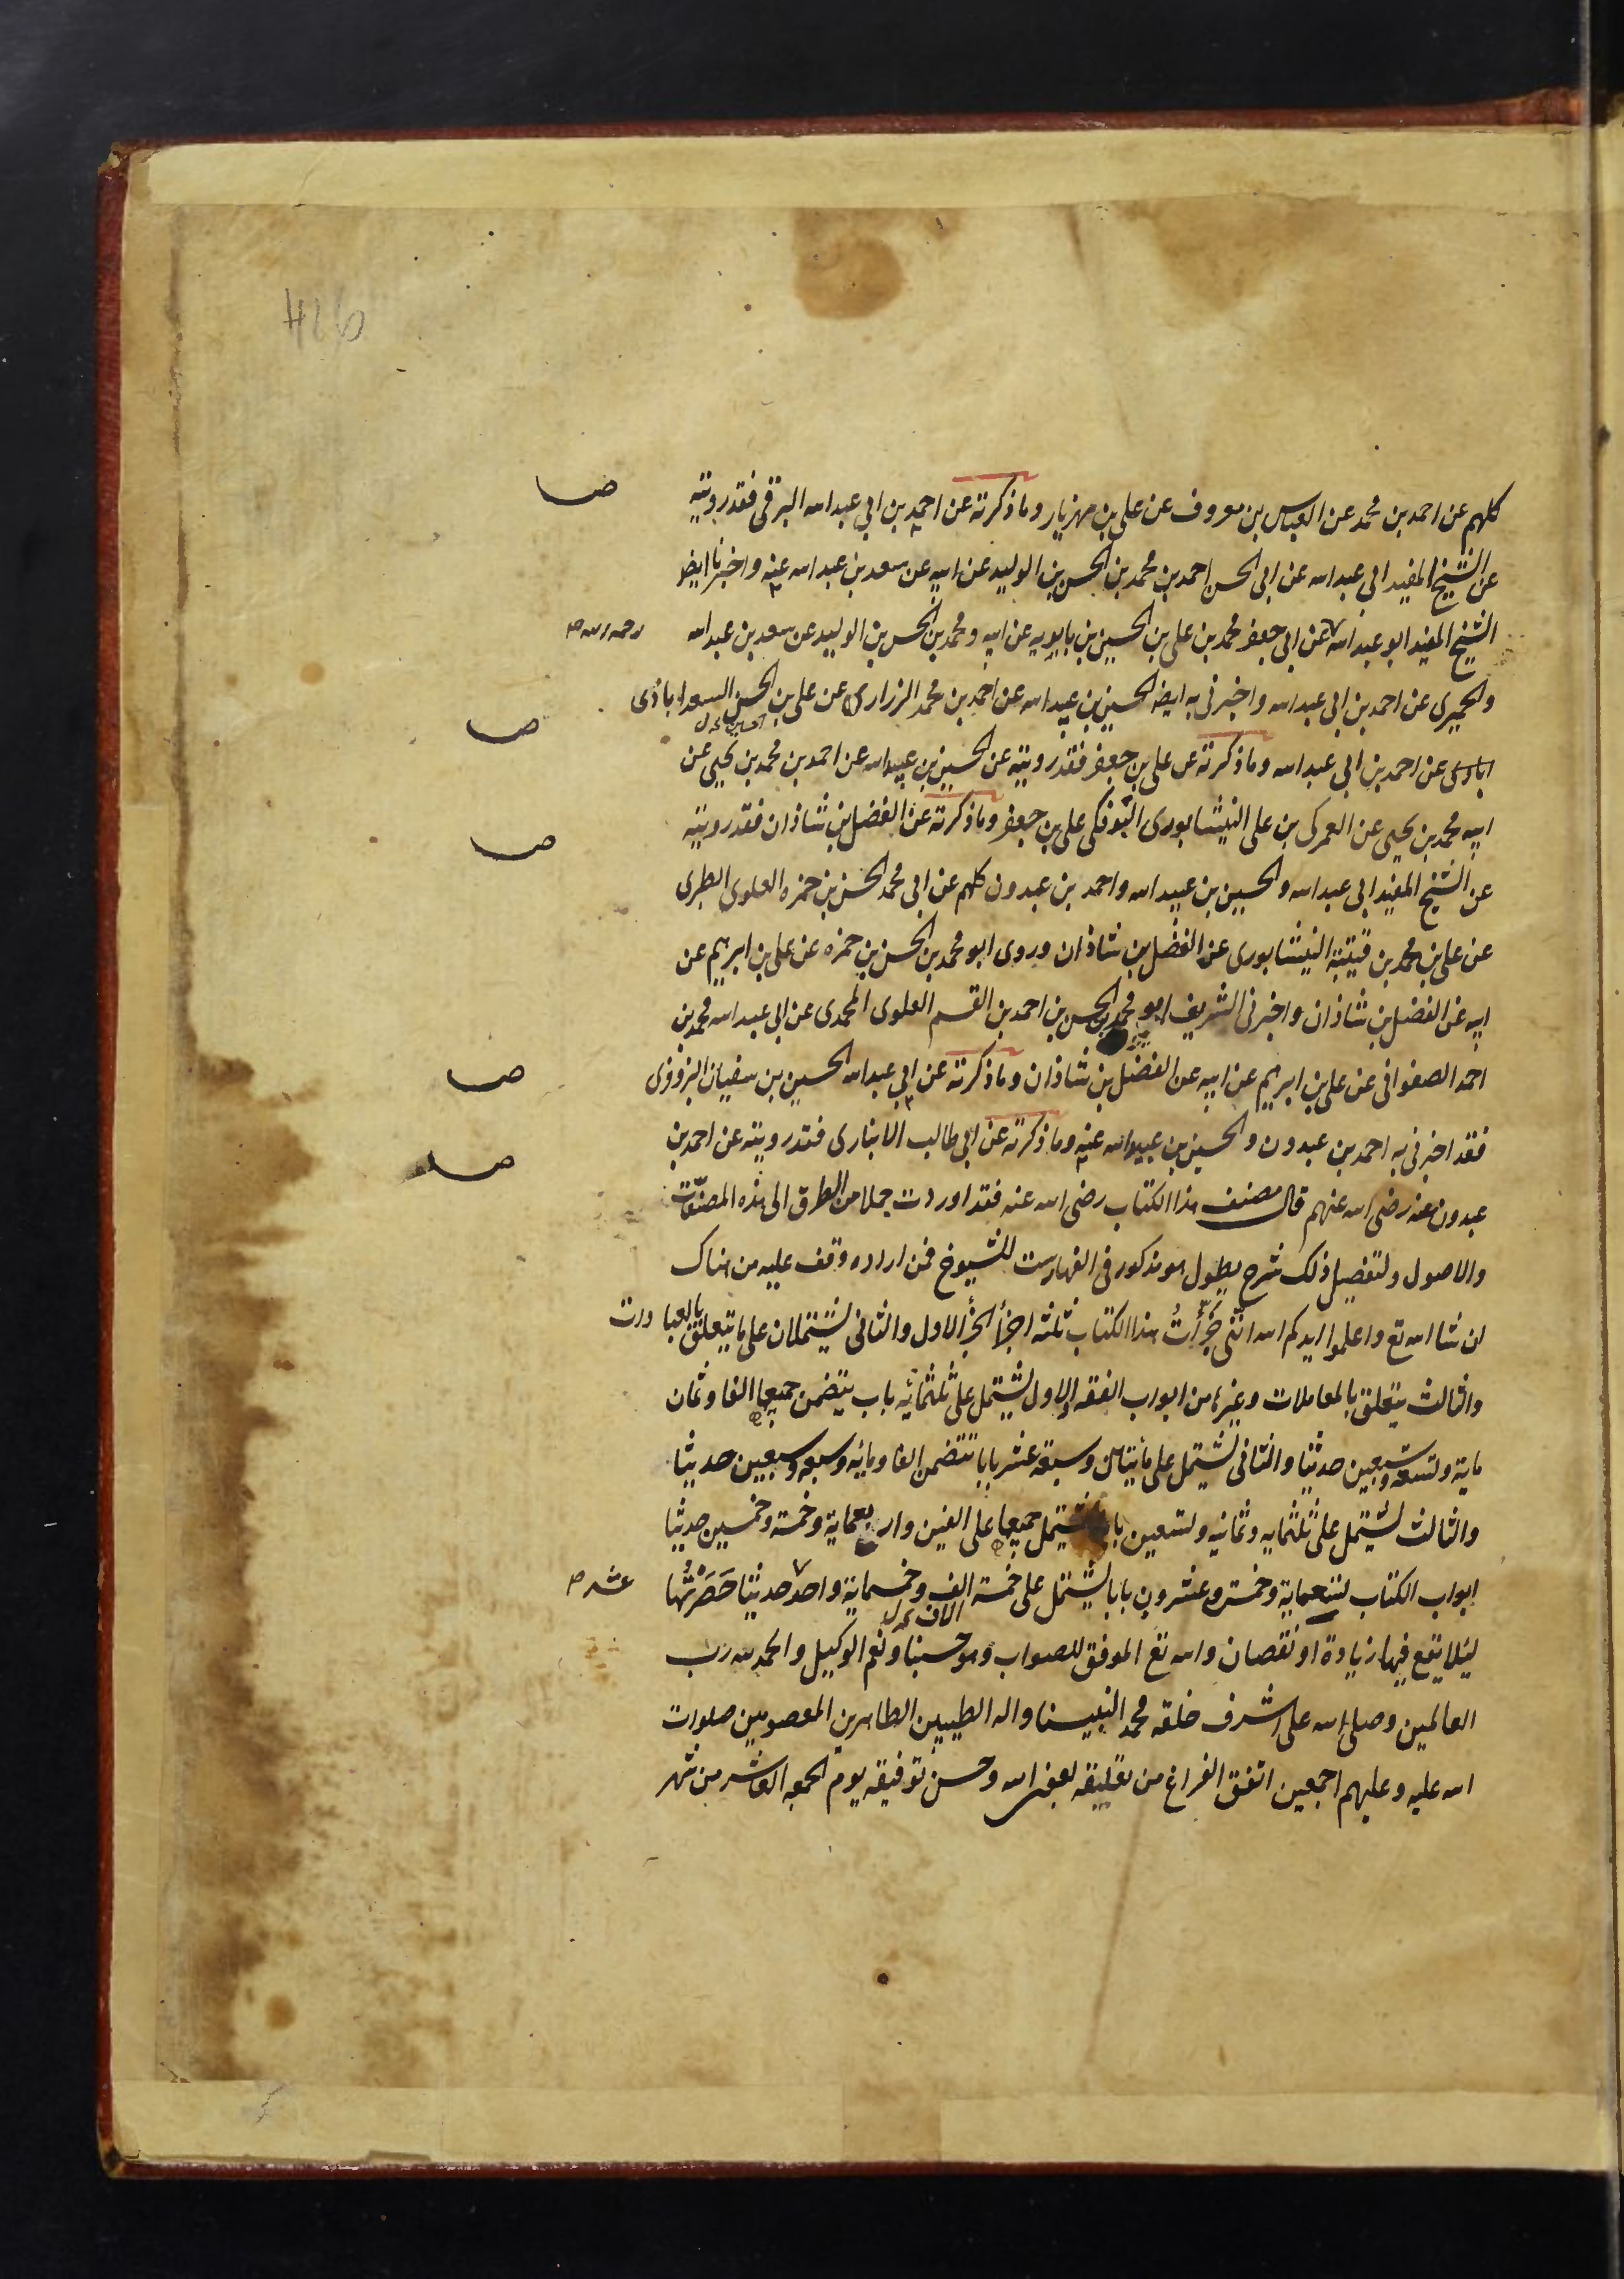 426
كلهم عن احمد بن محمد عن العباس بن معروف عن علي بن مهزيار وما ذكرته عن احمد بن ابي عبد الله البرقي فقد رويته
عن الشيخ المفيد ابي عبد الله عن ابي الحسن احمد بن محمد بن الحسن بن الوليد عن ابيه عن سعد بن عبد الله عنه واخبرنا ايضا
الشيخ المفيد ابو عبد الله عن ابي جعفر محمد بن علي بن الحسين بن بابويه عن ابيه ومحمد بن الحسن بن الوليد عن سعد بن عبد الله
رحمه الله صح
والحميري عن احمد بن ابي عبد الله واخبرني به ايضا الحسين بن عبيد الله عن احمد بن محمد الزراري عن علي بن الحسن السعدابادي
ابادى عن احمد بن ابي عبد الله وما ذكرته عن علي بن جعفر فقد رويته عن الحسين بن عبيد الله عن احمد بن محمد بن يحيى عن
ابيه محمد بن يحيى عن العمركي بن علي النيشابوري البوفكي علي بن جعفر وما ذكرته عن الفضل بن شاذان فقد رويته
عن الشيخ المفيد ابي عبد الله والحسين بن عبيد الله واحمد بن عبدون كلهم عن ابي محمد الحسن بن حمزه العلوي الطبري
عن علي بن محمد بن قتيبة النيشابوري عن الفضل بن شاذان وروى ابو محمد بن الحسن بن حمزه عن علي بن ابرهيم عن
ابيه عن الفضل بن شاذان واخبرني الشريف ابو محمد بن الحسن بن احمد بن القسم العلوي المحمدي عن ابي عبد الله محمد بن
احمد الصفواني عن علي بن ابرهيم عن ابيه عن الفضل بن شاذان وما ذكرته عن ابي عبد الله الحسين بن سفيان البزوفري
فقد اخبرني به احمد بن عبدون والحسين بن عبيد الله عنه وما ذكرته عن ابي طالب الانباري فقد رويته عن احمد بن
عبدون عنه رضي الله عنهم قال مصنف هذا الكتاب رضي الله عنه فقد اوردت جملا من الطرق الى هذه المصنفات
والاصول ولتفصيل ذلك شرح يطول هو مذكور في الفهارست للشيوخ فمن اراده وقف عليه من هناك
ان شا الله تع واعلموا ايدكم الله انني جزأت هذا الكتاب ثلثه اجزأ الجزأ الاول والثاني يشتملان على ما يتعلق بالعبادات
والثالث يتعلق بالمعاملات وغيرها من ابواب الفقه الاول يشتمل على ثلثمائه باب يتضمن جميعها الفا وثمان
ماية وتسعه وتسعين حديثا والثاني يشتمل على مائتان وسبعة عشر بابا تتضمن الفا ومائه وسبعه وسبعين حديثا
والثالث يشتمل على ثلثمايه وثمانيه وتسعين بابا يشتمل جميعها على الفين واربعماية وخمسة وخمسين حديثا
ابواب الكتاب تسعماية وخمسة وعشرون بابا يشتمل على خمسة الف وخمسماية واحد حديثا حَصَرْتُها
عشر صح
الاف
لئلا يقع فيها زيادة او نقصان والله تع الموفق للصواب وهو حسبنا ونعم الوكيل والحمد لله رب
العالمين وصلى الله على اشرف خلقه محمد النبينا واله الطيبين الطاهرين المعصومين صلوات
الله عليه وعليهم اجمعين اتفق الفراغ من تعليقه بعون الله وحسن توفيقه يوم الجمعه العاشر من شهر